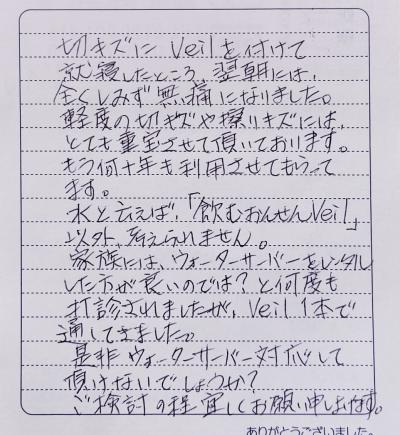 切キズに Veilを付けて
就寝したところ、翌朝には、
全くしみず無痛になりました。
軽度の切キズや擦りキズには、
とても重宝させて頂いております。
もう何十年も利用させてもらって
ます。
水と云えば、「飲むおんせんVeil」
以外、考えられません。
家族には、ウォーターサーバーをレンタル
した方が良いのでは?と何度も
打診されましたが、Veil 1本で
通してきました。
是非ウォーターサーバー対応して
頂けないでしょうか?
ご検討の程宜しくお願い申しあげます。
ありがとうございました。